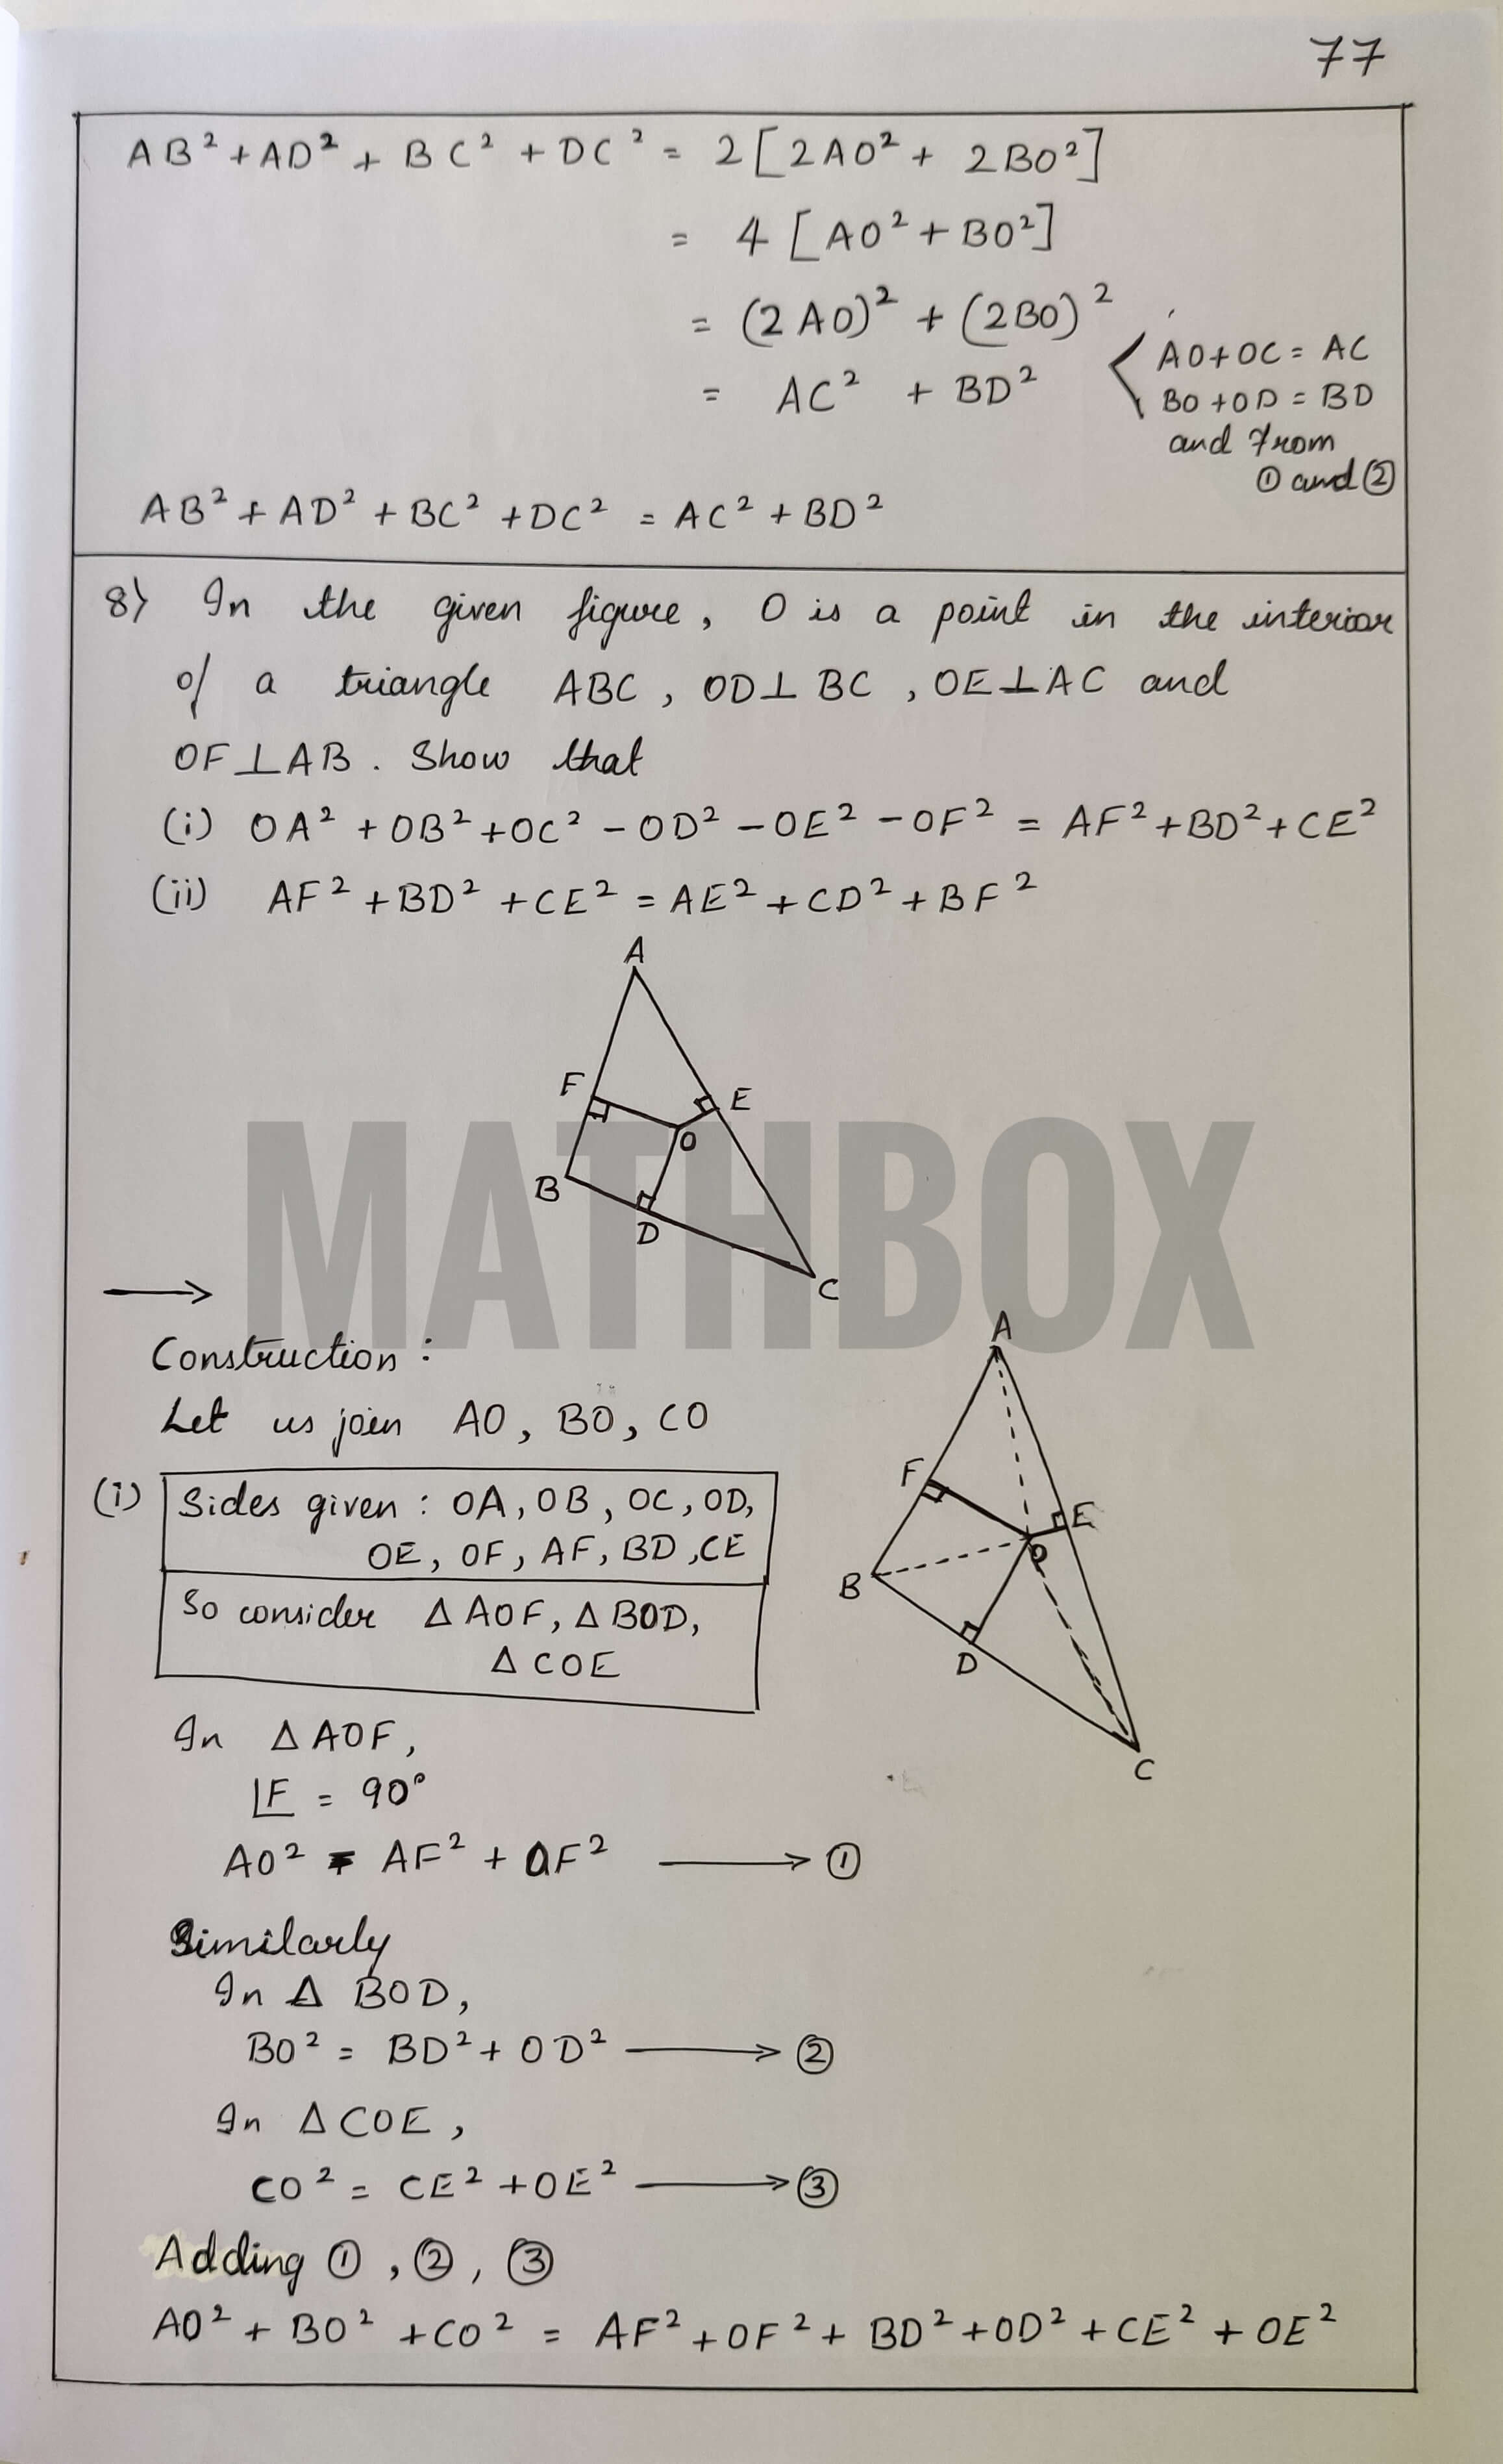 77
AB² + AD² + BC² + DC² = 2[2AO² + 2BO²]
= 4[AO² + BO²]
= (2AO)² + (2BO)²
= AC² + BD²
AO + OC = AC
BO + OD = BD
and from
① and ②
AB² + AD² + BC² + DC² = AC² + BD²
8) In the given figure, O is a point in the interior
of a triangle ABC, OD⊥BC, OE⊥AC and
OF⊥AB. Show that
(i) OA² + OB² + OC² − OD² − OE² − OF² = AF² + BD² + CE²
(ii) AF² + BD² + CE² = AE² + CD² + BF²
A
F
E
O
B
D
C
MATHBOX
→
Construction:
Let us join AO, BO, CO
A
F
E
O
B
D
C
(i) Sides given: OA, OB, OC, OD,
OE, OF, AF, BD, CE
So consider △AOF, △BOD,
△COE
In △AOF,
∠F = 90°
AO² = AF² + OF² → ①
Similarly
In △ BOD,
BO² = BD² + OD² → ②
In △COE,
CO² = CE² + OE² → ③
Adding ①, ②, ③
AO² + BO² + CO² = AF² + OF² + BD² + OD² + CE² + OE²